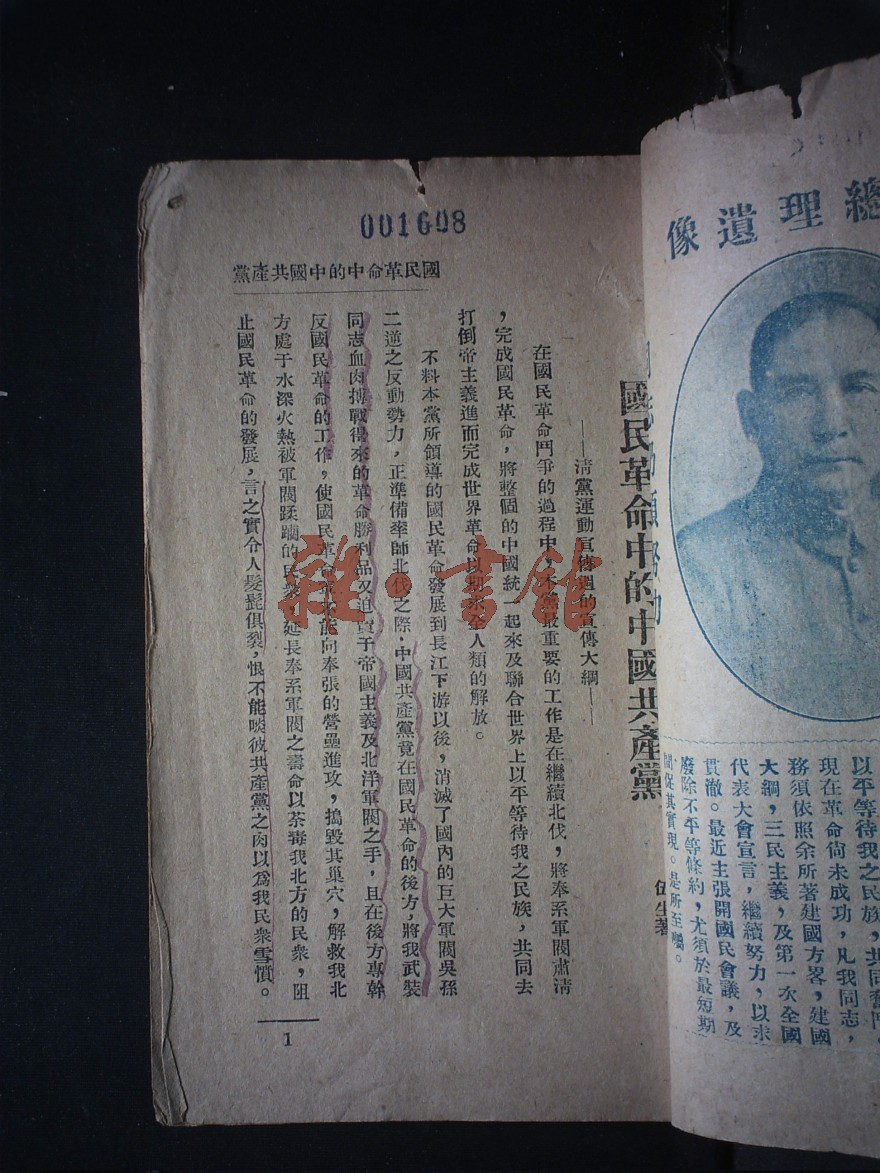 總理遺像
以平等待我之民族，共同奮鬥。
現在革命尚未成功，凡我同志，
務須依照余所著建國方畧，建國
大綱，三民主義，及第一次全國
代表大會宣言，繼續努力，以求
貫澈。最近主張開國民會議，及
廢除不平等條約，尤須於最短期
間促其實現。是所至囑。
001608
國民革命中的中國共產黨
國民革命中的中國共產黨
伍生著
——清黨運動宣傳週的宣傳大綱——
在國民革命鬥爭的過程中，本黨最重要的工作是在繼續北伐，將奉系軍閥肅清
，完成國民革命，將整個的中國統一起來及聯合世界上以平等待我之民族，共同去
打倒帝主義進而完成世界革命以期求全人類的解放。
不料本黨所領導的國民革命發展到長江下游以後，消滅了國內的巨大軍閥吳孫
二逆之反動勢力，正準備率師北伐之際，中國共產黨竟在國民革命的後方，將我武裝
同志血肉搏戰得來的革命勝利品又迫賣于帝國主義及北洋軍閥之手，且在後方專幹
反國民革命的工作，使國民革命不能向奉張的營壘進攻，搗毀其巢穴，解救我北
方處于水深火熱被軍閥蹂躪的民衆，延長奉系軍閥之壽命以荼毒我北方的民衆，阻
止國民革命的發展，言之實令人髮髭俱裂，恨不能啖彼共產黨之肉以爲我民衆雪憤。
1
雜·書館